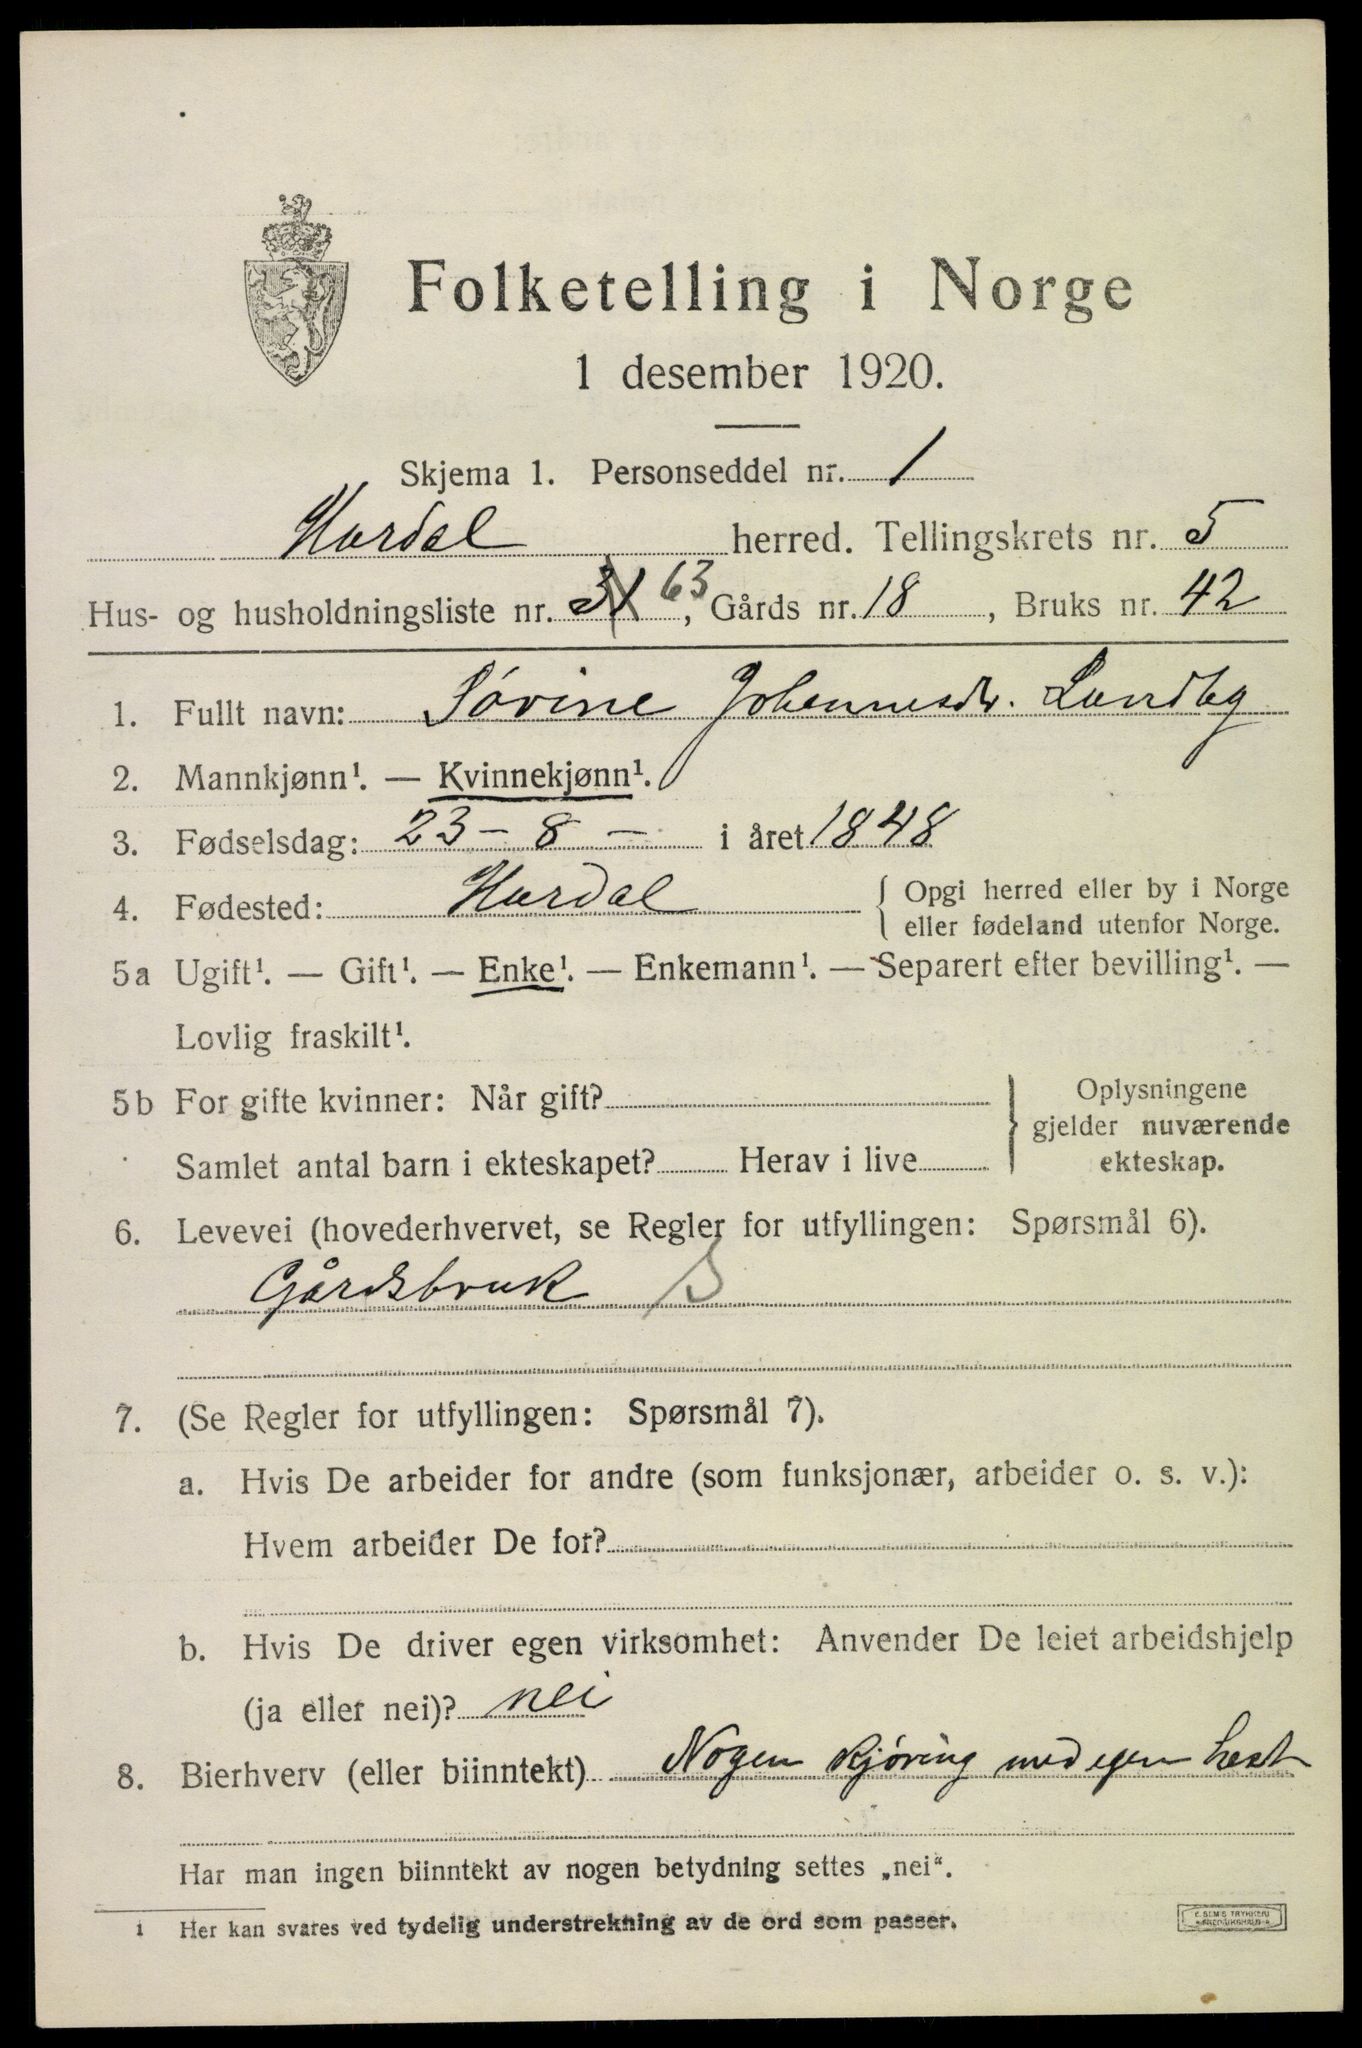 Folketelling i Norge
1 desember 1920.
Skjema 1. Personseddel nr. 1
Hurdal herred. Tellingskrets nr. 5
Hus- og husholdningsliste nr. 31 63, Gårds nr. 18, Bruks nr. 42
1. Fullt navn: Sørine Johannesdr. Lundby
2. Mannkjønn¹. — Kvinnekjønn¹.
3. Fødselsdag: 23 - 8 - i året 1848
4. Fødested: Hurdal { Opgi herred eller by i Norge
eller fødeland utenfor Norge.
5a Ugift¹. — Gift¹. — Enke¹. — Enkemann¹. — Separert efter bevilling¹. —
Lovlig fraskilt¹.
5b For gifte kvinner: Når gift?
Samlet antal barn i ekteskapet? Herav i live
} Oplysningene
gjelder nuværende
ekteskap.
6. Levevei (hovederhvervet, se Regler for utfyllingen: Spørsmål 6).
Gårdsbruk S
7. (Se Regler for utfyllingen: Spørsmål 7).
a. Hvis De arbeider for andre (som funksjonær, arbeider o. s. v.):
Hvem arbeider De for?
b. Hvis De driver egen virksomhet: Anvender De leiet arbeidshjelp
(ja eller nei)? nei
8. Bierhverv (eller biinntekt) Nogen kjøring med egen hest
Har man ingen biinntekt av nogen betydning settes „nei“.
1 Her kan svares ved tydelig understrekning av de ord som passer.
E. SEM'S TRYKKERI
FREDRIKSHALD